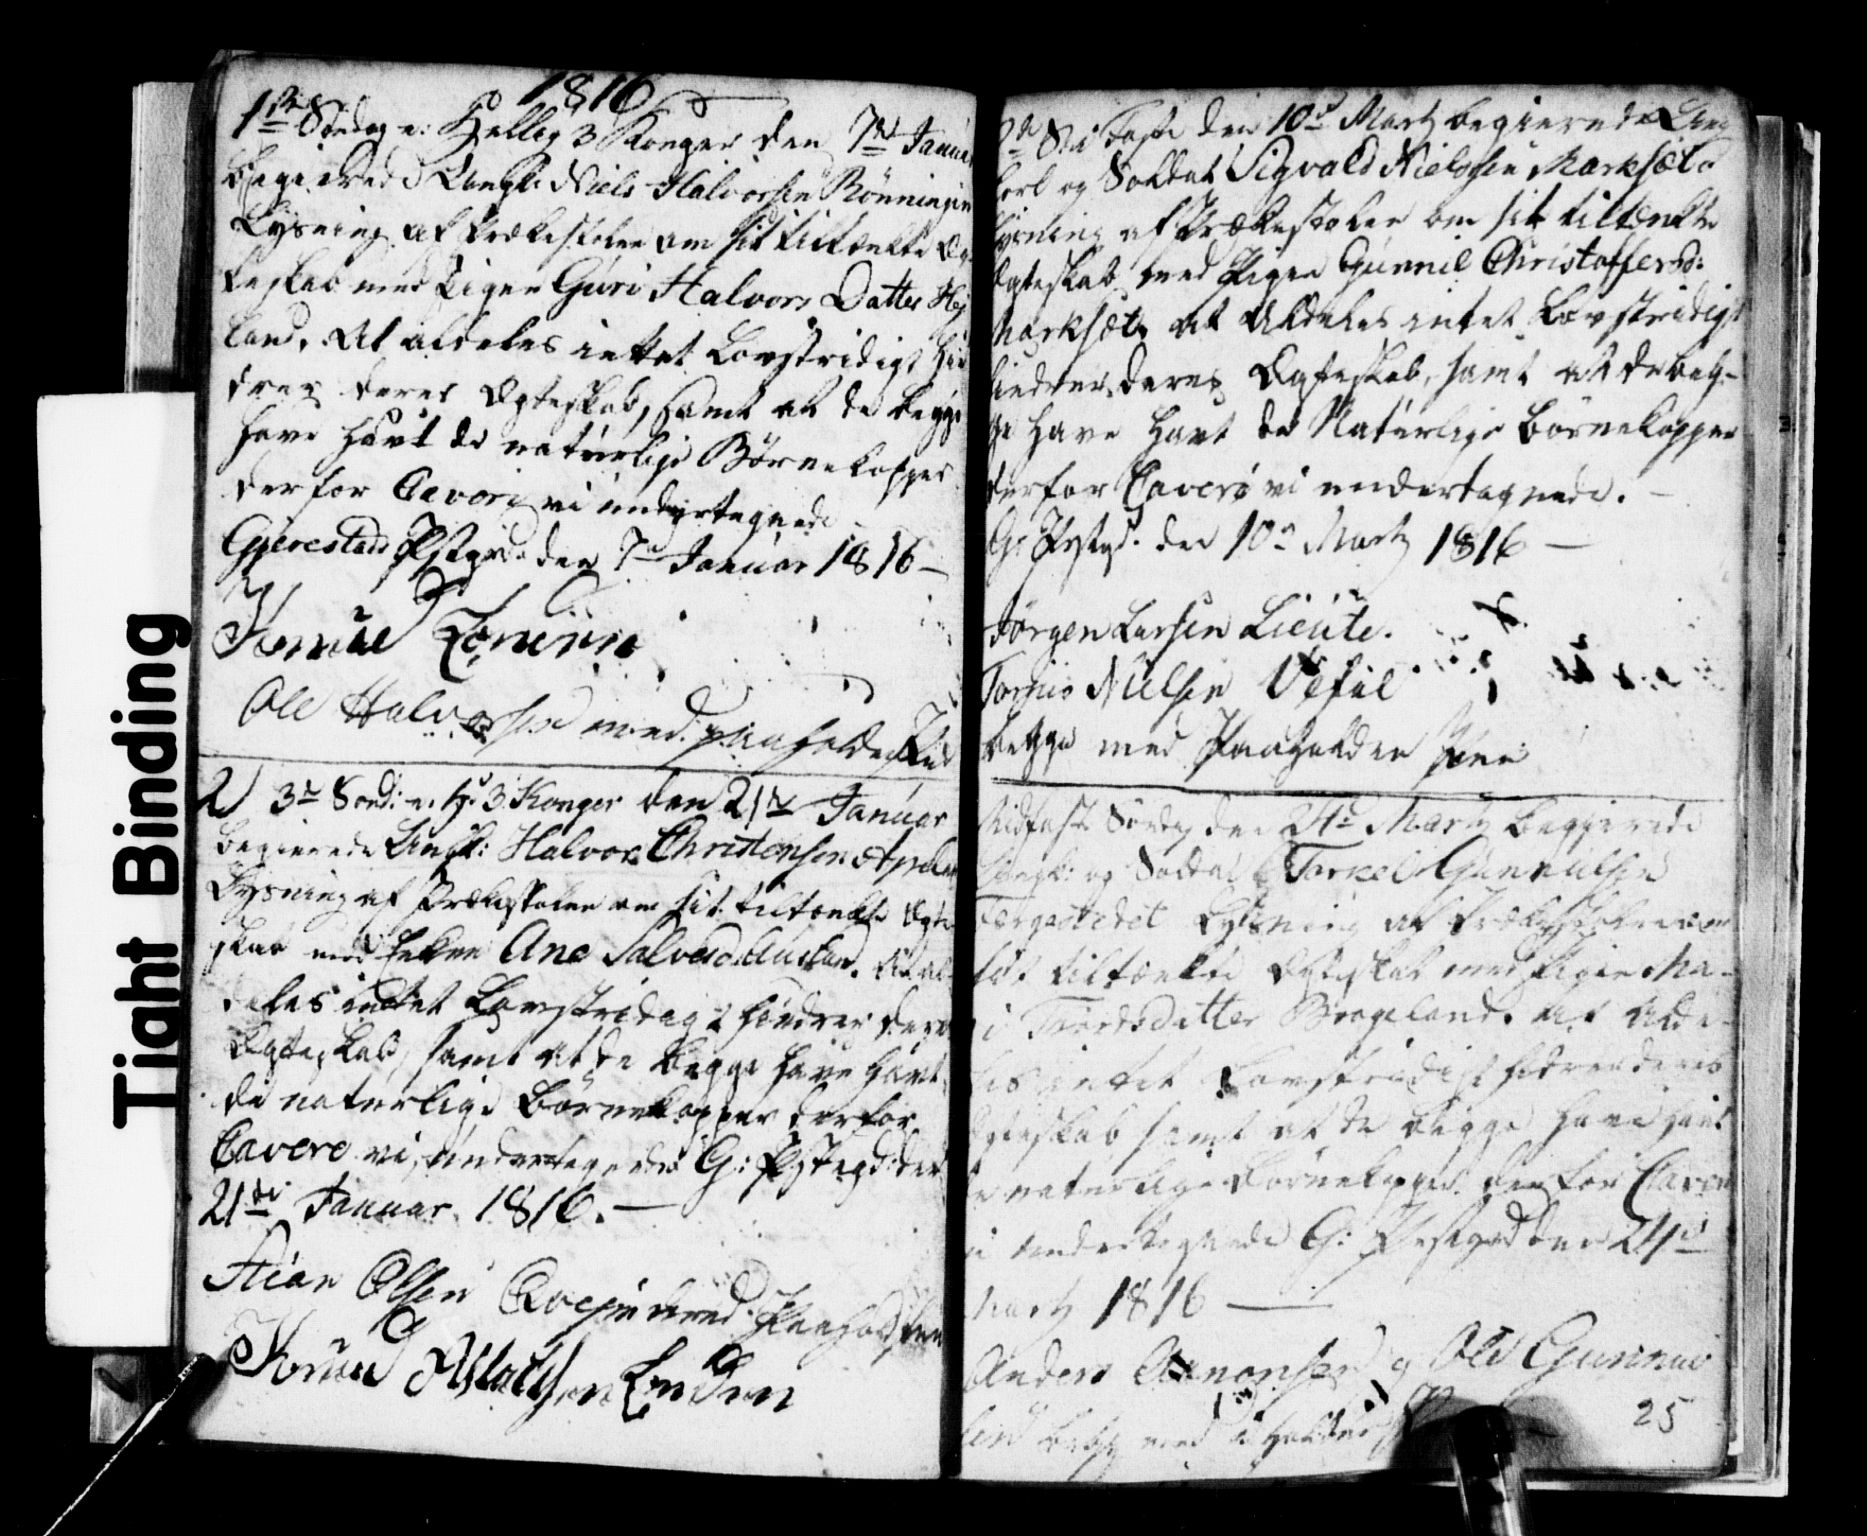 1816
1ste Søndag e: Hellig 3 Konger den 7de Januar
Begierede Ungk: Niels Halvorsen Rønningen
Lysning af Prækestolen om sit tiltænkte Eg-
teskab med Pigen Guri Halvors Datter Hej
land. At aldeles intet Lovstridigt hin
drer deres Egteskab, samt at de begge
have havt de naturlige Børnekopper
derfor Cavere vi undertegnede
Gjerestads Præstgrd: den 7de Januar 1816 –
Knud
Ole Halvorsen med paaholden Pen
2) 3de Sønd: e. H: 3 Konger den 21de Januar
begierede Ungk: Halvor Christensen
Lysning af Prækestolen om sit tiltænkte Egte
skab med Enken Ane Salvesd: . At al-
deles intet Lovstridigt hindrer deres
Egteskab, samt at de begge have havt
de naturlige Børnekopper derfor
Cavere vi undertegnede G: Præstegd: den
21de Januar 1816. –
Stian Olsen med Paaholden Pen
Knud Aslachsen Lunden
Tight Binding
2de S: i Faste den 10de Martz begierede Ung
karl og Soldat Sigvald Nielssen Marksæt
Lysning af Prækestolen om sit tiltænkte
Egteskab med Pigen Gunnil Christoffersd:
Marksæt, at Aldeles intet Lovstridigt
hindrer deres Egteskab, samt at de beg-
ge have havt de Naturlige Børnekopper
derfor Cavere vi undertegnede. –
G: Præstgd: den 10de Martz 1816 –
Jørgen Larsen Lieute.
Torjus Nielsen Vefal
begge med Paaholden Pen
Midfaste Søndag den 24de Martz begjerede
Ungk: og Soldat Torkel Gunnulsen
Lysning af Prækestolen om
sit tiltænkte Egteskab med Pigen Ma-
ri Tiordsdatter . At Alde-
les intet Lovstridigt hindrer deres
Egteskab samt at de begge have havt
de naturlige Børnekopper derfor Cavere
vi undertegnede G: Præstgrd den 24de
Martz 1816 –
Anders Aanonsen og Ole Gunnul
sen begge med Paaholden
25